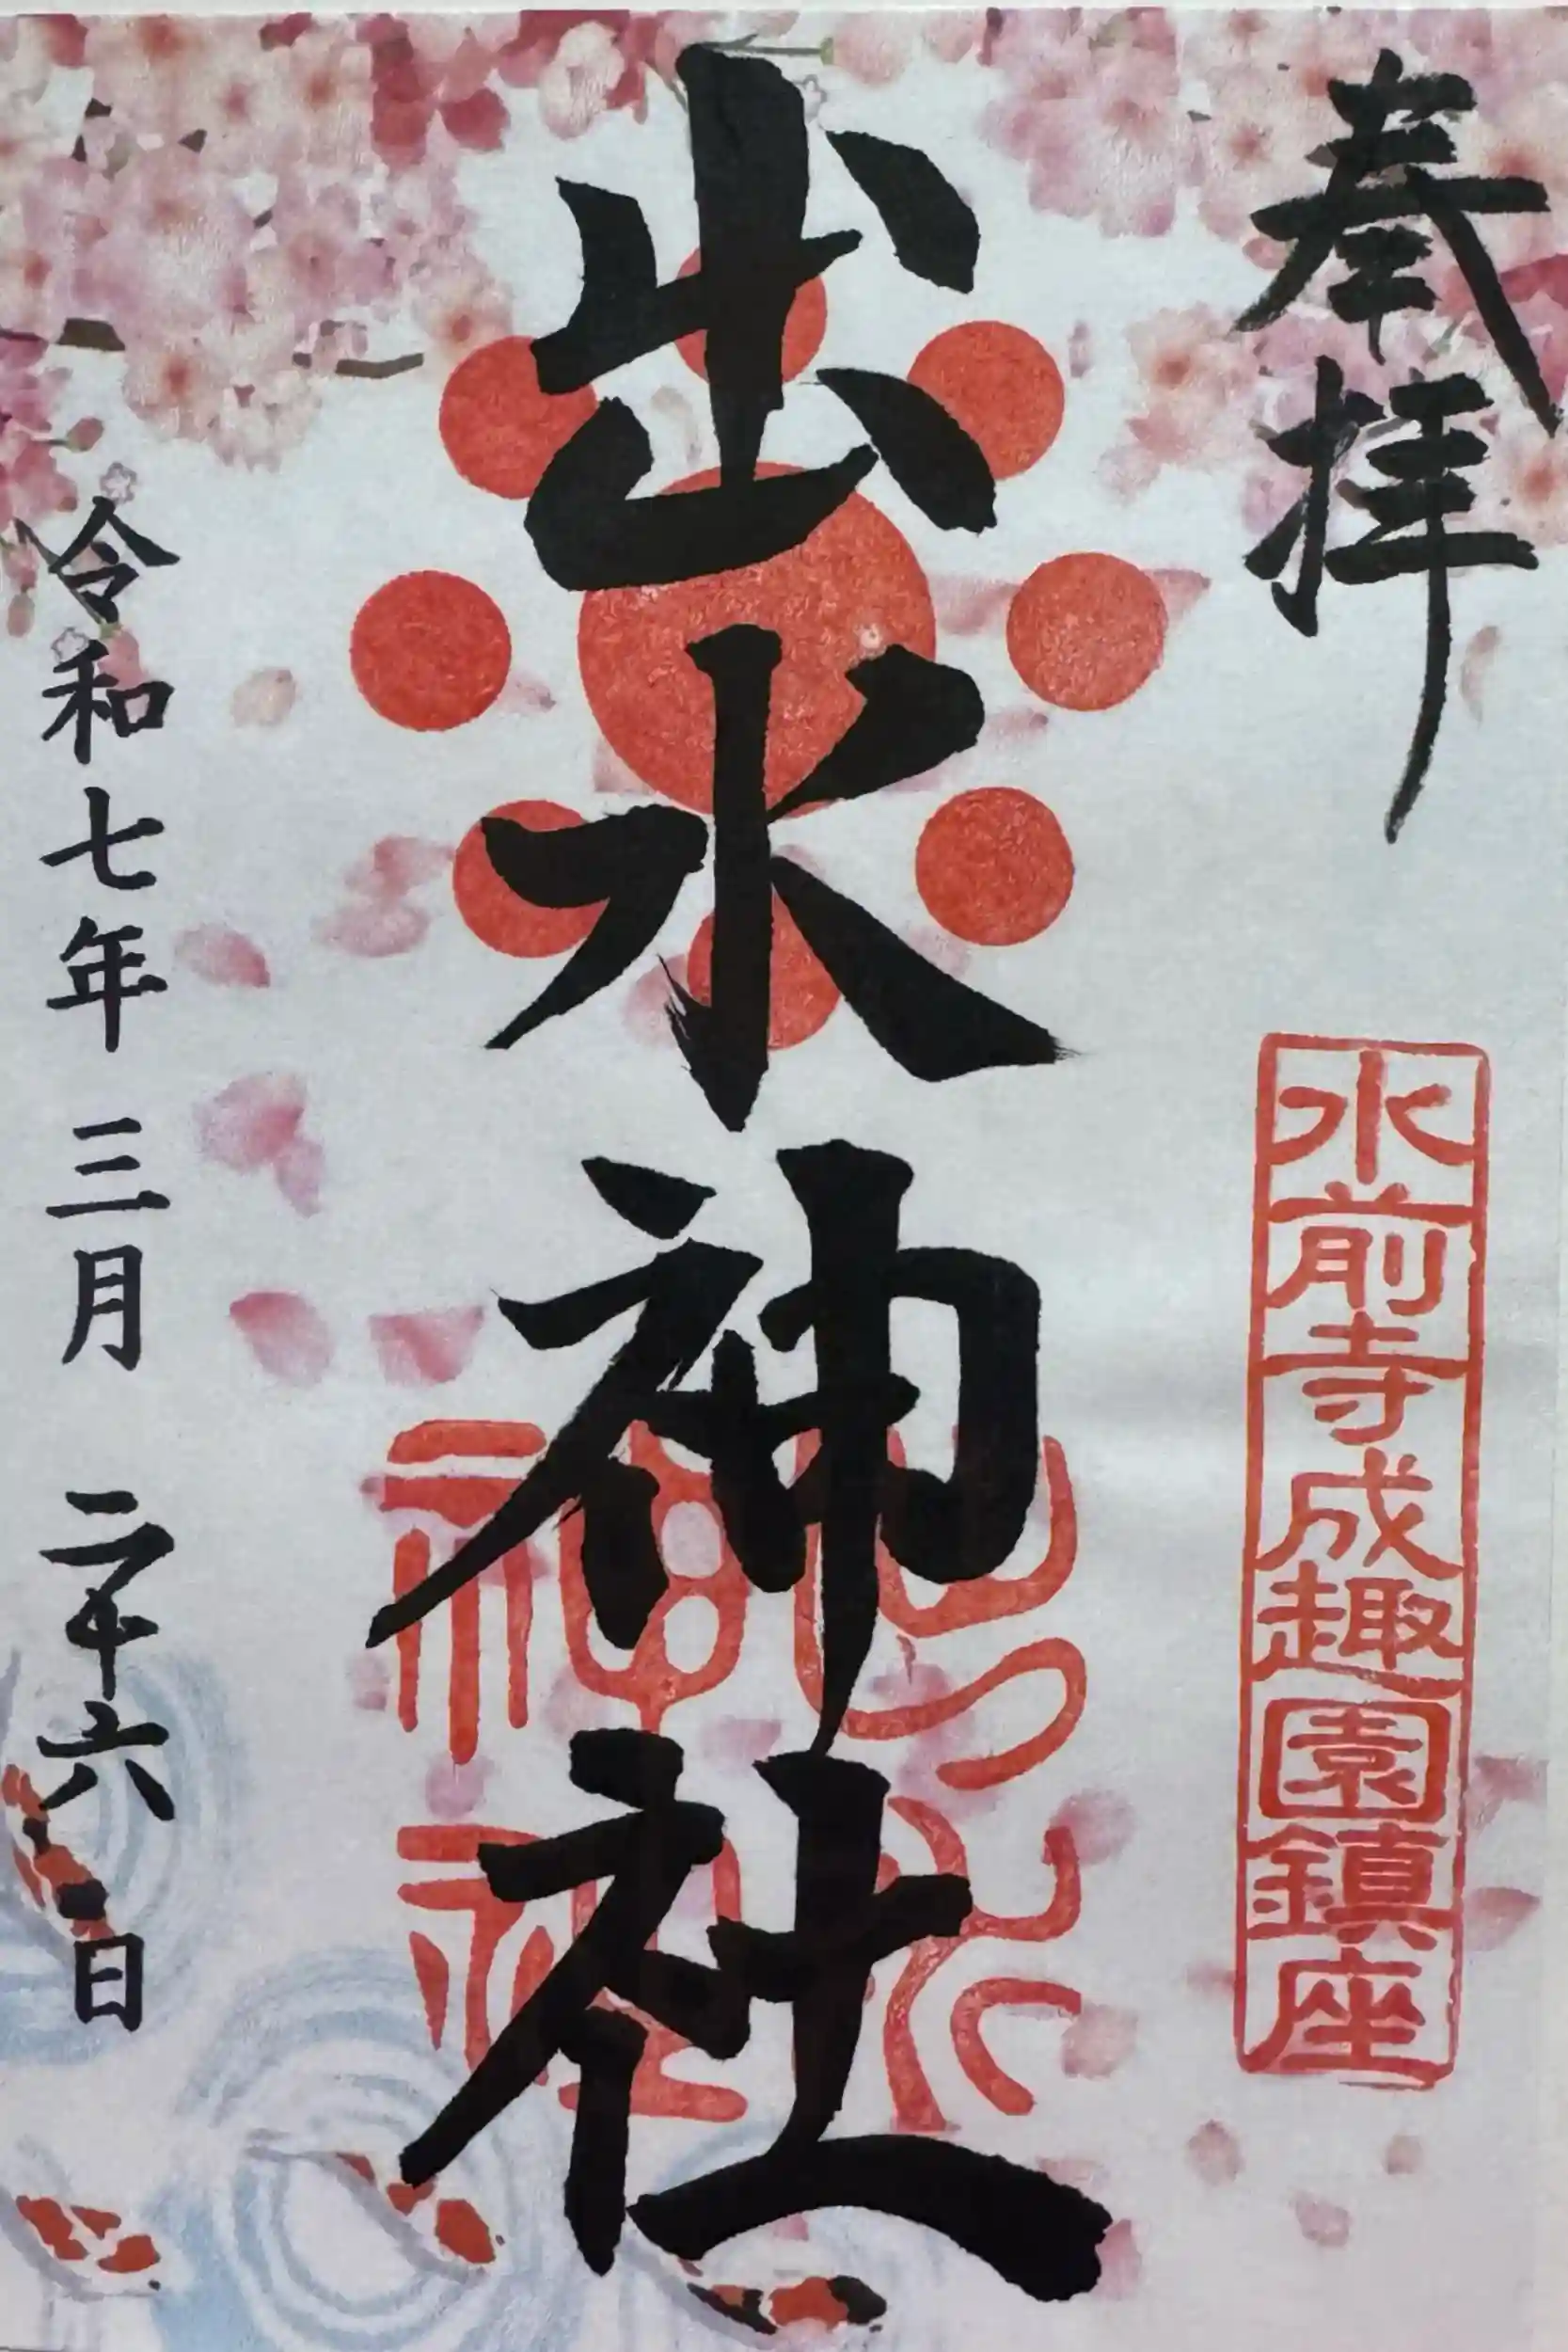 奉拝
水前寺成趣園鎮座
出水神社
出水神社
令和七年 三月 二十六日